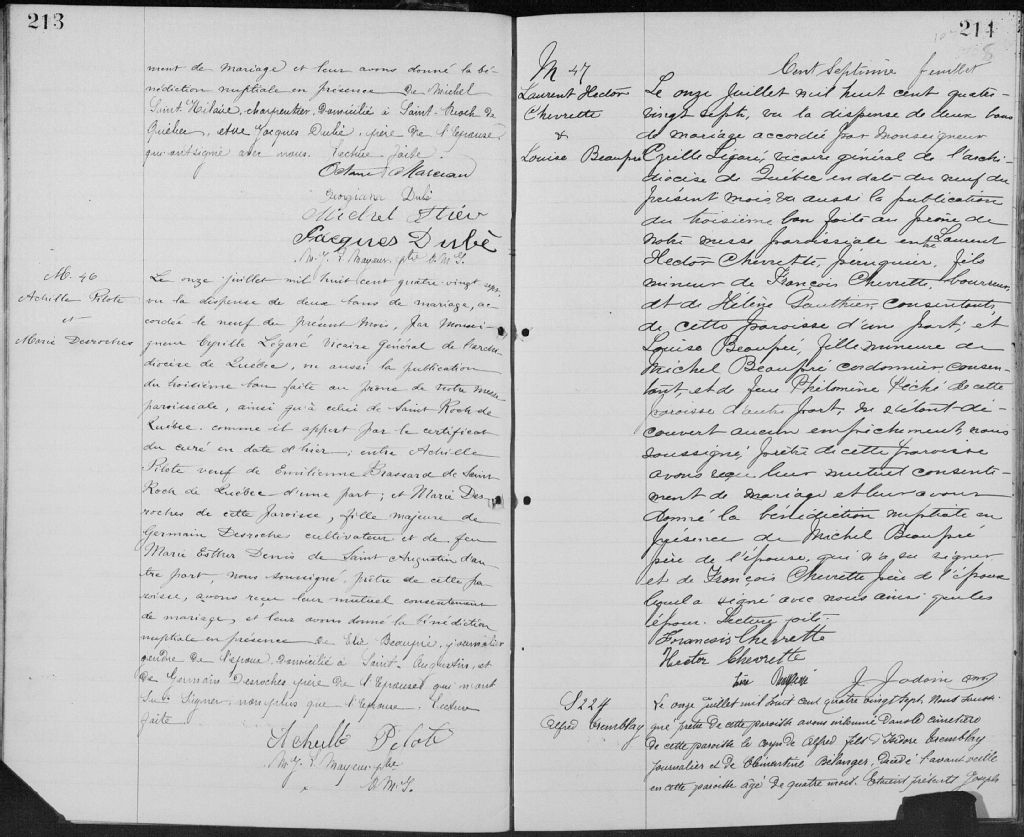 213
ment de mariage et leur avons donné la bé-
nédiction nuptiale en présence de Michel
Saint Hilaire, charpentier, domicilié à Saint Roch de
Québec, et de Jacques Dubé, père de l'Epouse
qui ont signé avec nous. Lecture faite.
Octave Marceau
Georgiana Dubé
Michel Hiev
Jacques Dubé
M. 46
Achille Pilote
et
Marie Desroches
Le onze juillet mil huit cent quatre vingt sept,
vu la dispense de deux bans de mariage, ac-
cordée le neuf du présent mois, par Monsei-
gneur Cyrille Légaré Vicaire Général de l'archi-
diocèse de Québec, vu aussi la publication
du troisième ban faite au prone de notre messe
paroissiale, ainsi qu'à celui de Saint Roch de
Québec comme il appert par le certificat
du curé en date d'hier; entre Achille
Pilote veuf de Emilienne Brassard de Saint
Roch de Québec d'une part; et Marie Des-
roches de cette Paroisse, fille majeure de
Germain Desroches cultivateur et de feu
Marie Esther Denis de Saint Augustin d'au-
tre part, nous soussigné, prêtre de cette pa-
roisse, avons reçu leur mutuel consentement
de mariage, et leur avons donné la bénédiction
nuptiale en présence de Beaupré, journalier
gendre de l'époux, domicilié à Saint-Augustin, et
de Germain Desroches père de l'Epouse, qui n'ont
su Signer, non plus que l'Epouse. Lecture
faite
Achille Pilote
214
Cent Septième feuillet
M 47
Laurent Hector
Chevrette
&
Louise Beaupré
Le onze Juillet mil huit cent quatre-
vingt sept, vu la dispense de deux bans
de mariage accordée par Monseigneur
Cyrille Légaré, vicaire général de l'archi-
diocèse de Québec en date du neuf du
présent mois, vu aussi la publication
du troisième ban faite au prône de
notre messe paroissiale entre Laurent
Hector Chevrette, perruquier, fils
mineur de François Chevrette, bourreur,
et de Hélène Gauthier, consentants,
de cette paroisse d'une part; et
Louise Beaupré, fille mineure de
Michel Beaupré cordonnier, consen-
tant, et de feue Philomène de cette
paroisse d'autre part, ne s'étant dé-
couvert aucun empêchement, nous
soussigné, prêtre de cette paroisse
avons reçu leur mutuel consente-
ment de mariage et leur avons
donné la bénédiction nuptiale en
présence de Michel Beaupré
père de l'épouse, qui n'a su signer
et de François Chevrette père de l'époux
lequel a signé avec nous ainsi que les
époux. Lecture faite.
François Chevrette
Hector Chevrette
J. Jodoin
S 224
Alfred Tremblay
Le onze juillet mil huit cent quatre vingt sept, nous sous-
signé prêtre de cette paroisse avons inhumé dans le cimetière
de cette paroisse le corps de Alfred fils d'Isidore Tremblay
journalier et de Bélanger, décédé l'avant veille
en cette paroisse âgé de quatre mois. Etaient présents Joseph